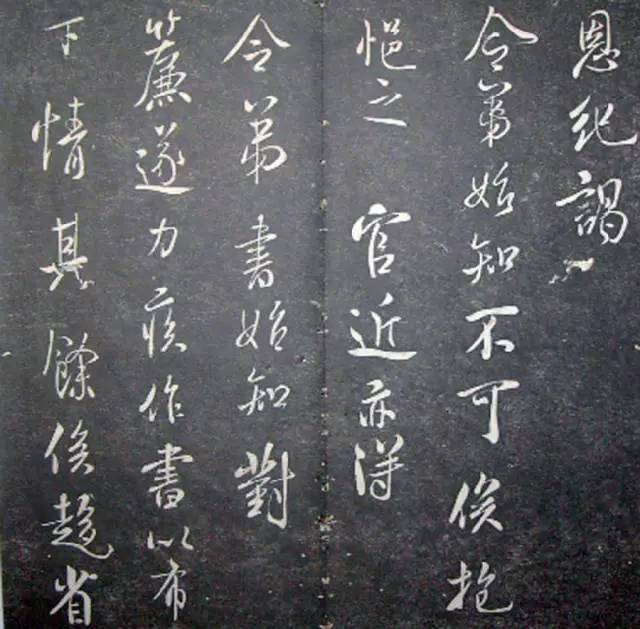 恩紀謁
令弟始知不可俟抱
悒之官近亦得
令弟書始知對
簾遂力疾作書以布
下情其餘俟趨省